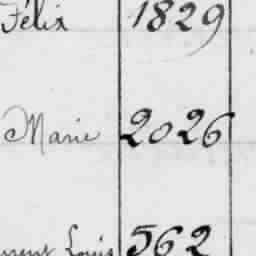 Félix 1829
Marie 2026
Louis 562